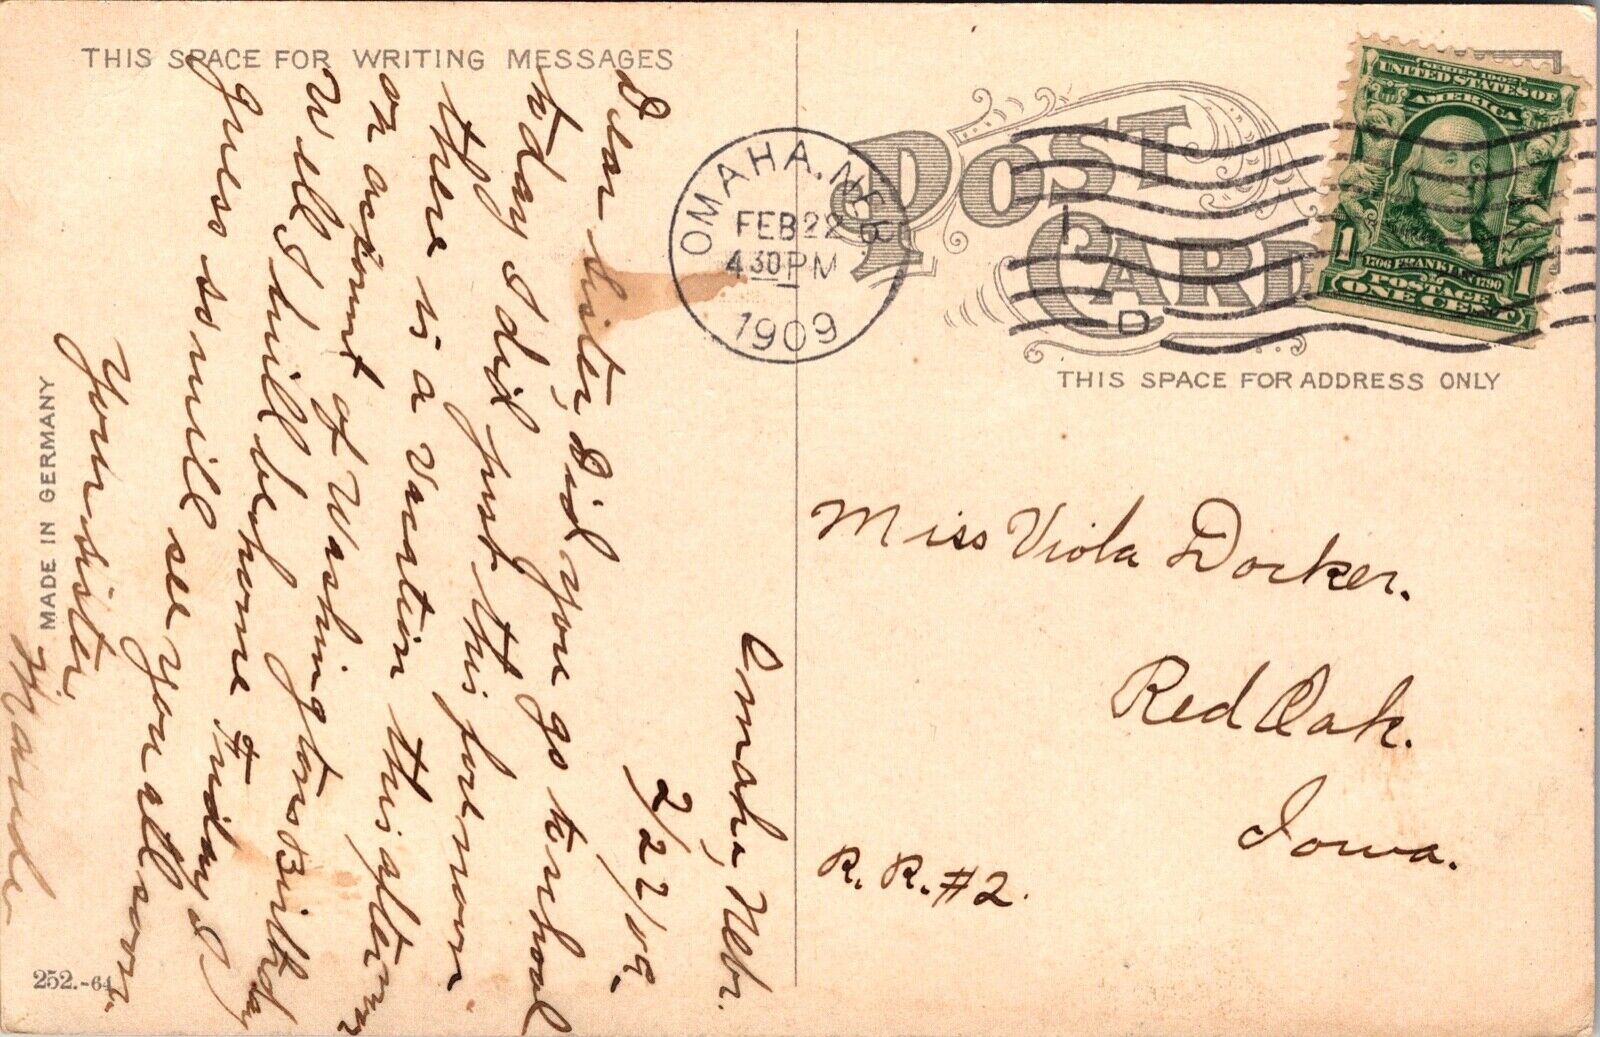 THIS SPACE FOR WRITING MESSAGES
Omaha, Nebr.
2/22/09.
Dear Sister, Did you go to school
today I did just this forenoon
there is a Vacation this afternoon
on account of Washingtons Birthday
Well I will be home Friday I
guess so will see you all soon.
Your sister
Maude
MADE IN GERMANY
252.-64
POST CARD
OMAHA, NEB.
FEB 22
4 30 PM
1909
1
D
SERIES 1902
UNITED STATES OF
AMERICA
1706 FRANKLIN 1790
POSTAGE
1 ONE CENT 1
THIS SPACE FOR ADDRESS ONLY
Miss Viola Dorker.
Red Oak.
Iowa.
R. R. #2.